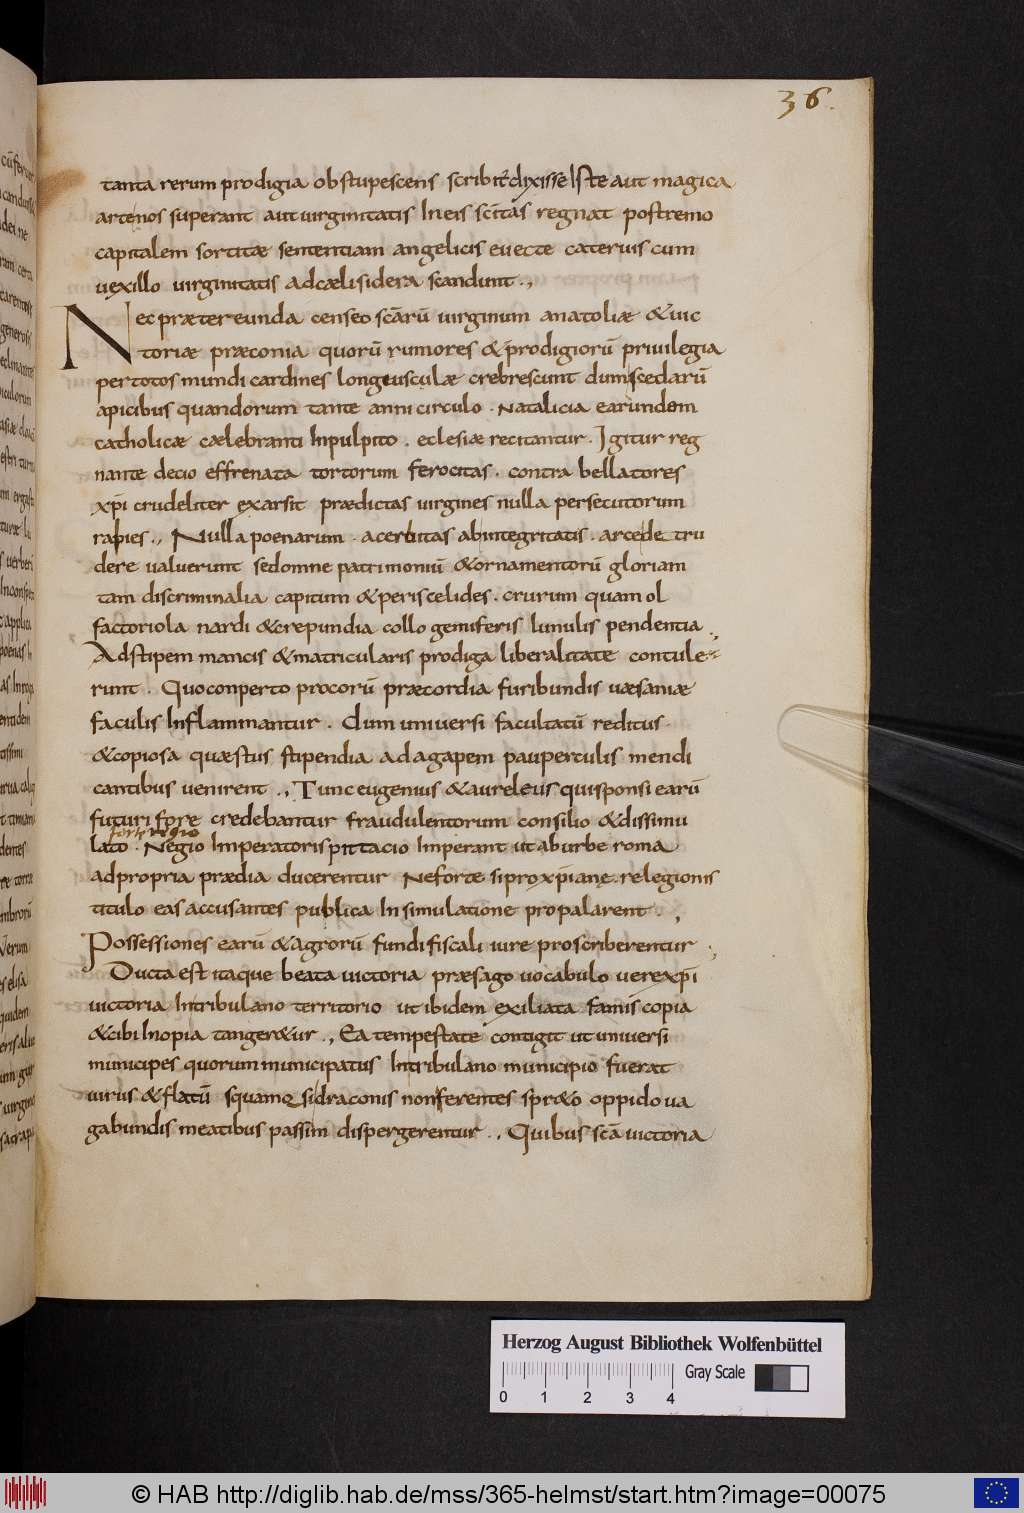 36.
tanta rerum prodigia obstupescens scribit͛ dixisse Iste aut magica
artenos superant aut uirginitatis In eis sc̄itas regnat postremo
capitalem sortitæ sententiam angelicis euecte cateruis cum
uexillo uirginitatis ad cæli sidera scandunt .,
Nec prætereunda censeo sc̄arū uirginum anatoliæ & uic
toriæ præconia quorū rumores & prodigiorū priuilegia
per totos mundi cardines longeusculæ crebrescunt dum scedarū
apicibus quandorum tante anni circulo . Natalicia earundem
catholicæ cælebranti In pulpito . eclesiæ recitantur . Igitur reg
nante decio effrenata tortorum ferocitas . contra bellatores
xp̄i crudeliter exarsit prædictas uirgines nulla persecutorum
rapies ., Nulla poenarum . acerbitas ab integritatis . arcede tru
dere ualuerunt sed omne patrimoniū & ornamentorū gloriam
tam discriminalia capitum & periscelides . crurum quam ol
factoriola nardi & crepundia collo gemiferis lunulis pendentia .,
Ad stipem mancis & matricularis prodiga liberalitate contule
runt . Quo conperto procorū præcordia furibundis uæsaniæ
faculis Inflammantur . dum uniuersi facultatū reditus
& copiosa quæstus stipendia ad agapem pauperculis mendi
cantibus uenirent ., Tunc eugenius & aureleus qui sponsi earū
futuri fore credebantur fraudulentorum consilio & dissimu
forte regio
lato . Negio Imperatoris pittacio Imperant ut ab urbe roma
ad propria prædia ducerentur Ne forte si pro xp̄iane relegionis
titulo eas accusantes publica In simulatione propalarent .,
Possessiones earū & agrorū fundi fiscali iure proscriberentur .,
Ducta est itaque beata uictoria præsago uocabulo uere xp̄i
uictoria In tribulano territorio ut ibidem exiliata famis copia
& cibi Inopia tanger&ur ., Ea tempestate contigit ut uniuersi
municipes quorum municipatus In tribulano municipio fuerat
uirus & flatū squamosi draconis non ferentes spr&o oppido ua
gabundis meatibus passim dispergerentur ., Quibus sc̄a uictoria
Herzog August Bibliothek Wolfenbüttel
Gray Scale
0 1 2 3 4
© HAB http://diglib.hab.de/mss/365-helmst/start.htm?image=00075